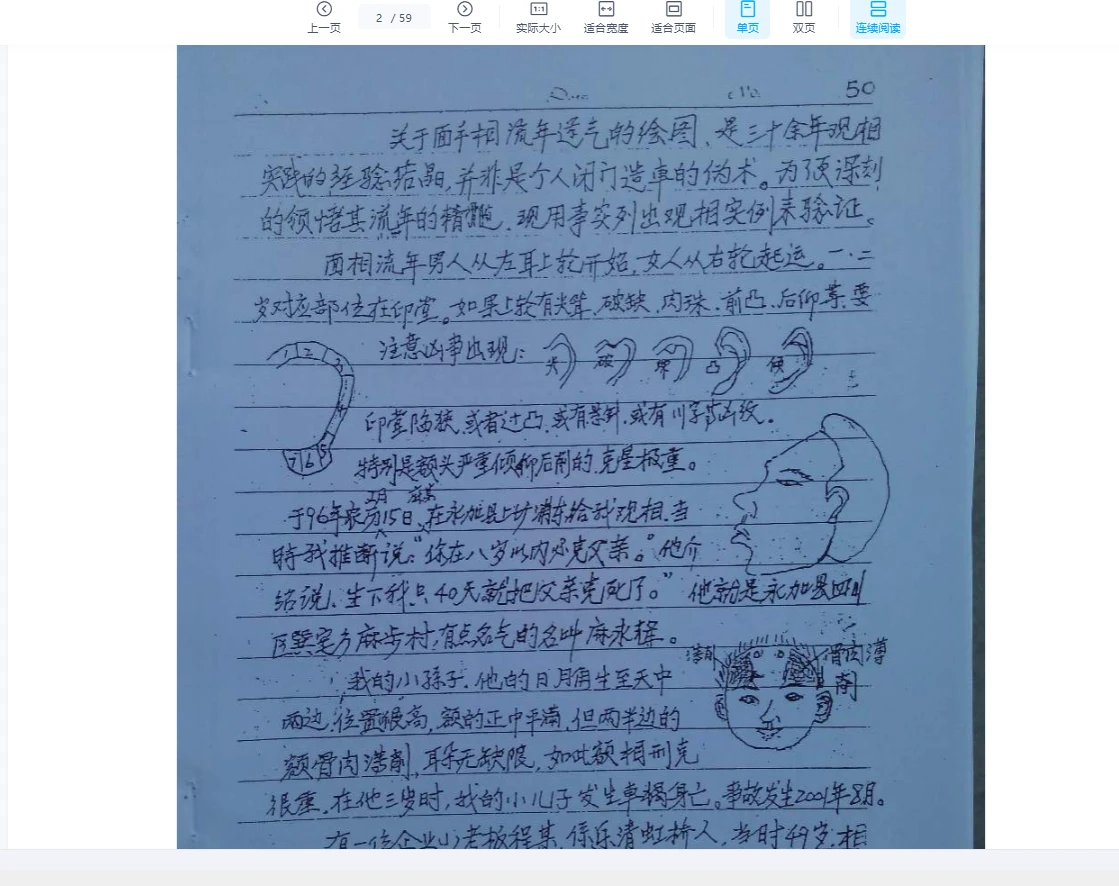 上一页
2 / 59
下一页
1:1
实际大小
适合宽度
适合页面
单页
双页
连续阅读
50
关于面手相流年运气的绘图、是三十余年观相
实践的经验结晶,并非是个人闭门造車的伪术。为了更深刻
的领悟其流年的精髓、现用事实列出观相实例来验证。
面相流年男人从左耳上轮开始,女人从右轮起运。一.二
岁对应部位在印堂。如果上轮有尖耸.破缺.肉珠.前凸.后仰等,要
注意凶事出现:
尖 破 凸
1 2 3 4 5 6 7
印堂陷狭,或者过凸,或有悬针,或有川字凶纹。
特别是额头严重倾仰后削的,克星极重。
正月
于96年农历15日,在永加县上塘给我观相,当
時我推断说:“你在八岁以内必克父亲。”他介
绍说、生下我只40天就把父亲克死了。” 他就是永加县
区巽宅乡麻步村,有点名气的名叫麻永
我的小孫子.他的日月角生至天中
薄削
骨肉薄
削
两边,位置很高,额的正中平满,但两半边的
额骨肉薄削,耳朵无缺限,如此额相刑克
很重.在他三岁时,我的小儿子发生車祸身亡。事故发生2001年8月。
有一位企业小老板程某,係乐清虹桥人,当时49岁.相